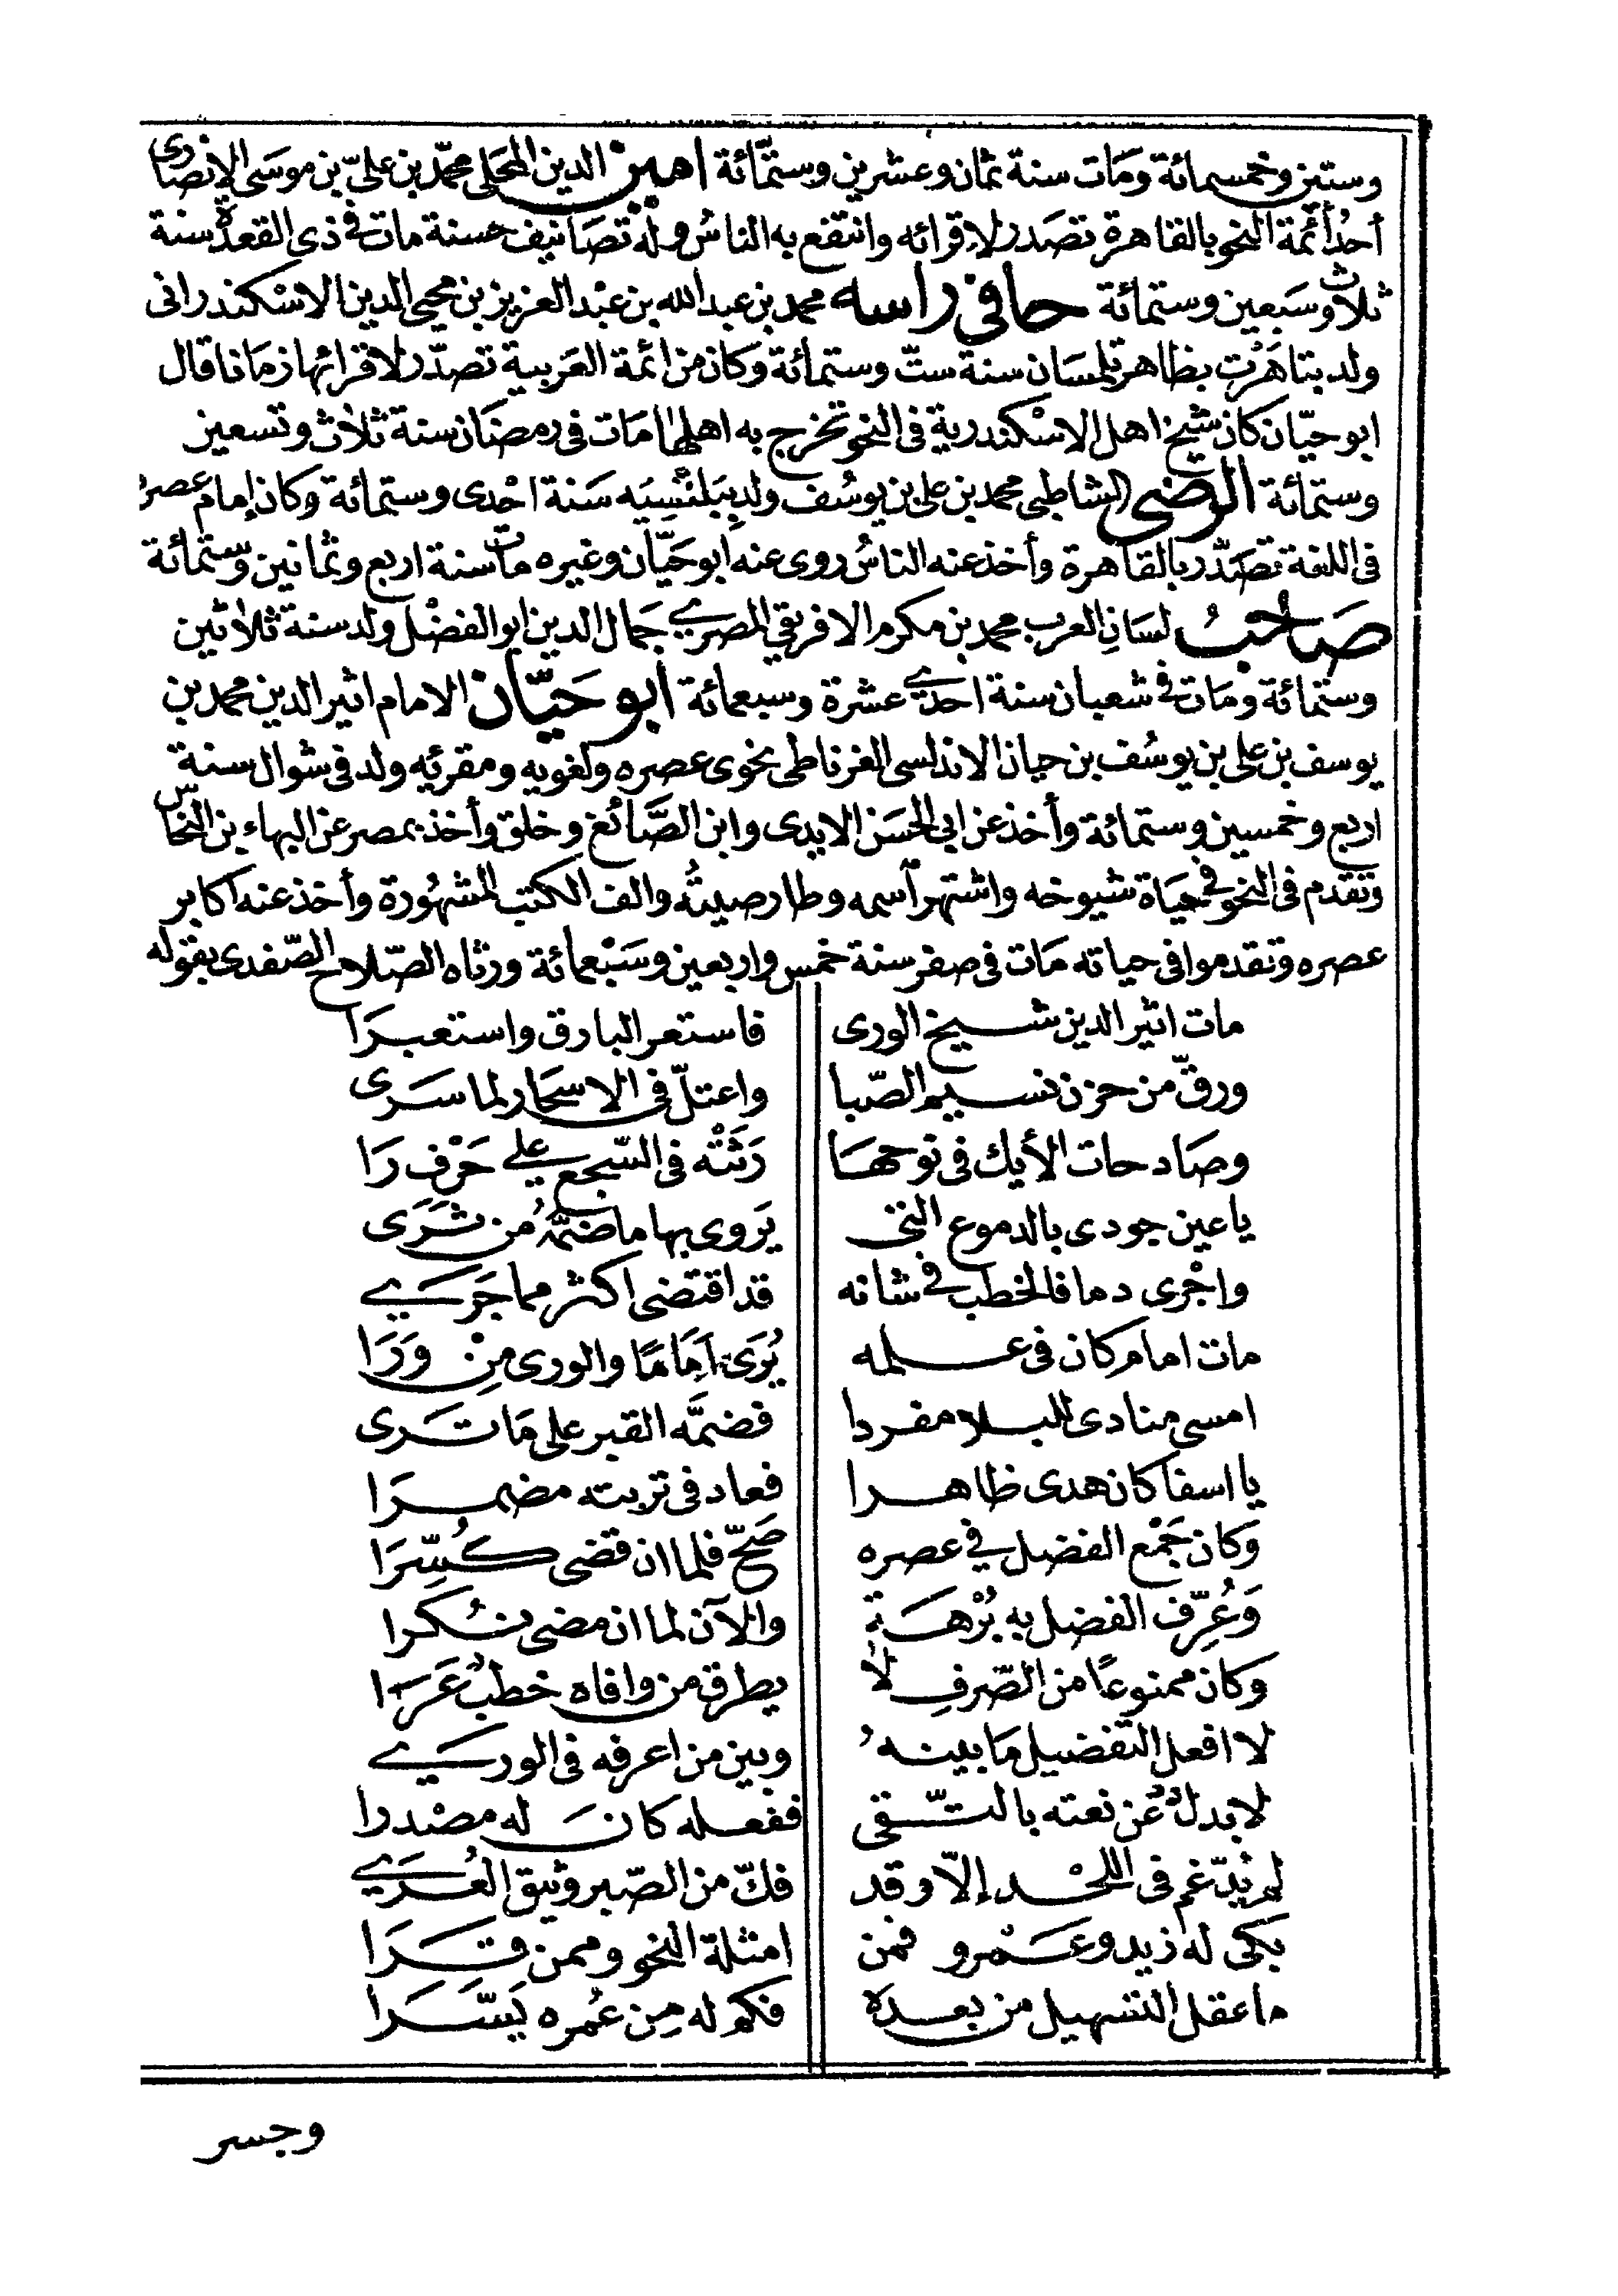 وستين وخمسمائة ومَات سنة ثمان وعشرين وستمّائة امين الدين المحلى محمّد بن علىّ بن موسَى الانصَارى
أحدُ أئمة النحو بالقاهرة تصَدر لاقرائه وانتفع به الناسُ وله تصَانيف حسنة مات فى ذى القعدة سنة
ثلاث وسَبعين وستمائة حافى راسه محمد بن عبد الله بن عبْد العزيز بن محيى الدين الاسْكندرانى
ولد بتاهَرْت بظاهر تلمسَان سنة ستّ وستمائة وكان من ائمة العَربية تصدّر لاقرائها زمَانا قال
ابو حيّان كان شيخ اهل الاسْكندرية فى النحو تخرج به اهلها مَات فى رمضَان سنة ثلاث وتسعين
وستمائة الرضى الشاطبى محمد بن على بن يوسُف ولد ببَلَنْسِيَه سَنة احْدى وستمائة وكان إمام عصره
فى اللغة تصَدّر بالقاهرة وأخذ عنه الناسُ روى عنه ابو حَيّان وغيره مات سنة اربع وثمانين وستمائة
صَاحبُ لسَان العرب محمد بن مكرم الافريقى المصرى جَمال الدين ابو الفضْل ولد سنة ثلاثين
وستمائة ومَات فى شعبان سنة احدى عشرة وسبعمائة أبو حَيّان الامام اثير الدين محمد بن
يوسف بن على بن يوسُف بن حيان الاندلسى الغرناطى نحوى عصره ولغويه ومقرئه ولد فى شوال سنة
اربع وخمسين وستمائة وأخذ عن ابى الحسَن الابدى وابن الصَّائغ وخلق وأخذ بمصر عن البهاء بن النحاس
وتقدم فى النحو فى حيَاة شيوخه واشتهر اسمه وطار صيتُه والف الكتب المشهُورة وأخذ عنه اكابر
عصره وتقدموا فى حياته مَات فى صفر سنة خمس واربعين وسَبْعمائة ورثاه الصّلاح الصّفدى بقوله
مات اثير الدين شيخ الورى فاستعر البارق واستعبرَا
ورقّ من حزن نسيم الصّبا واعتلّ فى الاسحَار لما سَرى
وصَادحات الأيك فى نوحهَا رَثَتْه فى السّجع على حَرْف رَا
يا عين جودى بالدموع التى يَروى بها ما ضمَّهُ من ثَرَى
واجْرى دما فالخطب فى شانه قد اقتضى اكثر مما جَرى
مات امام كان فى علمه يُرَى اَمَامًا والورى مِنْ وَرَا
امسى منادى للبلا مفردا فضمَّه القبر على مَا تَرى
يا اسفا كان هدى ظاهرا فعاد فى تربته مضمرَا
وَكان جَمْع الفضل فى عصره صَحّ فلما ان قضى كُسِّرَا
وَعُرِّف الفضل به بُرْهَة والآن لما ان مضى نُكرا
وكان ممنوعًا من الصّرفِ لا يطرق من وافاه خطبٌ عَرَا
لا افعل التفضيل مَا بينهُ وبين من اعرفه فى الورى
لا بدلٌ عن نعته بالتّقى ففعله كانَ له مصْدرا
لم يُدّغم فى اللحْد إلاّ وقد فكّ من الصّبر وثيق العُرَى
بكى له زيد وعَمرو فمن امثلة النحو وممن قَرَا
ما عقل التسهيل من بعده فكم له مِن عُمره يَسَّرَا
وجسر